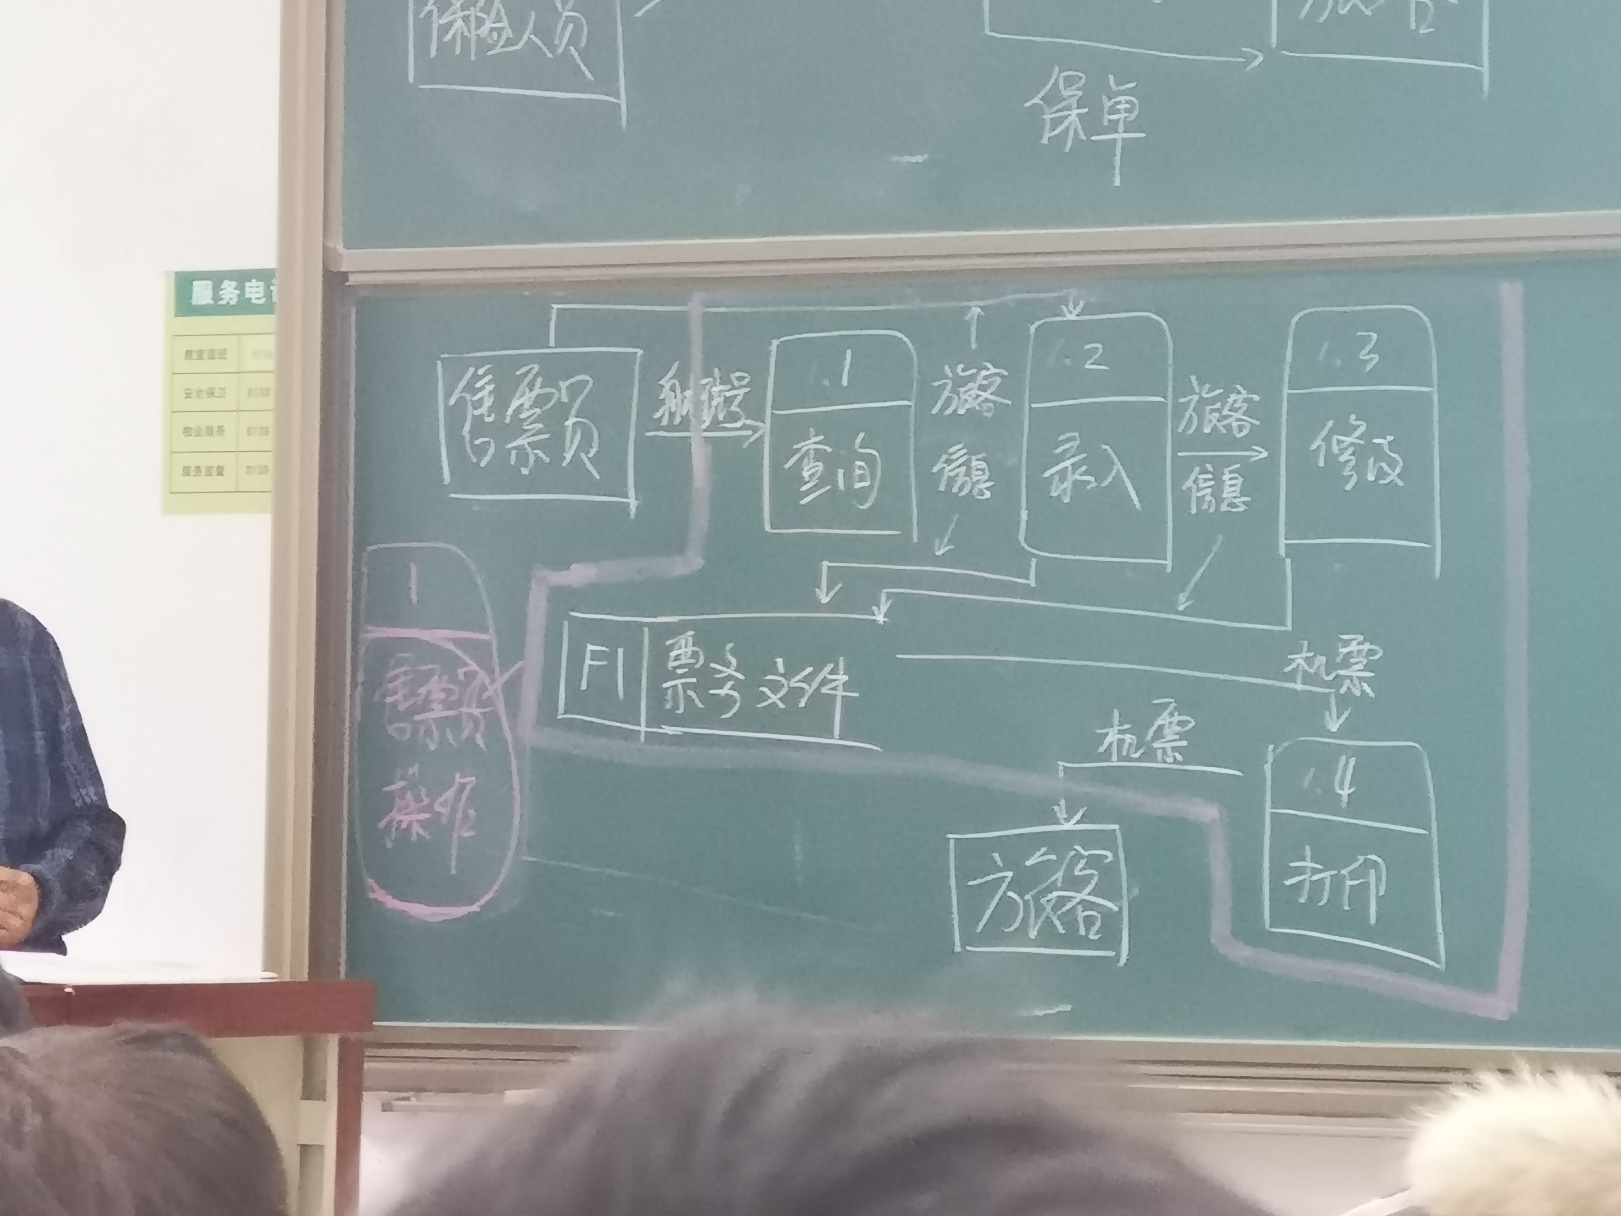 保险人员
旅客
保单
服务电
安全保卫
物业服务
服务监督
售票员
航班号
1.1
查询
旅客
信息
1.2
录入
旅客
信息
1.3
修改
1
售票员
操作
F1
票务文件
机票
机票
1.4
打印
旅客